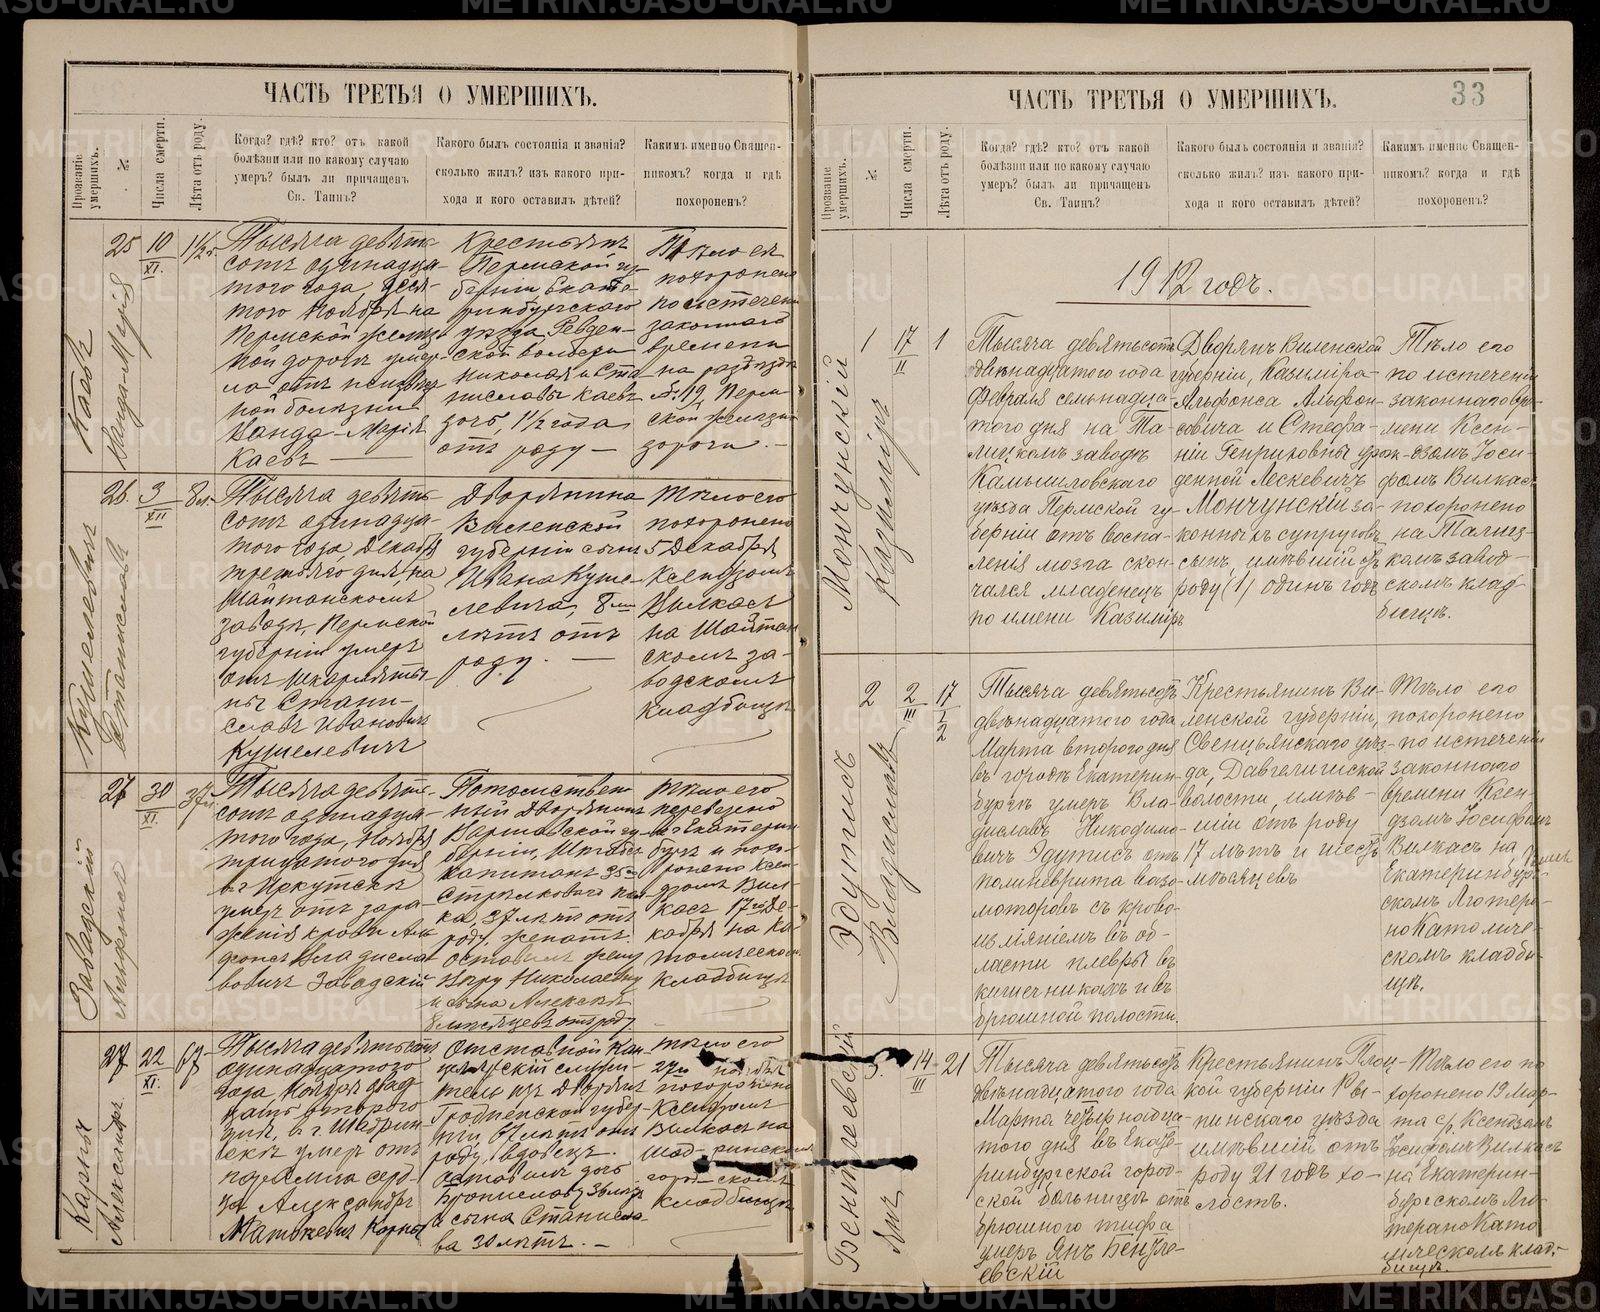 ЧАСТЬ ТРЕТЬЯ О УМЕРШИХЪ.
Прозваніе умершихъ.
№
Числа смерти.
Лѣта отъ роду.
Когда? гдѣ? кто? отъ какой
болѣзни или по какому случаю
умеръ? былъ ли причащенъ
Св. Таинъ?
Какого былъ состоянія и званія?
сколько жилъ? изъ какого при-
хода и кого оставилъ дѣтей?
Какимъ именно Священ-
никомъ? когда и гдѣ
похороненъ?
Каевъ
Ванда-Марія
25
10
XI.
1½
Тысяча девять
сотъ одинадца-
того года, деся-
того Ноября на
Пермской желѣз
ной дорогѣ умер-
ла отъ
ной болѣзни
Ванда-Марія
Каевъ
Крестьянъ
Пермской гу-
берніи Екате-
ринбургскаго
уѣзда Ревден-
ской волости
Николая и Ста
ниславы Каевъ
дочь, 1½ года
отъ роду —
Тѣло ея
похоронено
по истеченіи
законнаго
времени
на разъѣздѣ
№ 19, Перм
ской желѣзн
дороги. —
Кушелевичъ
Станиславъ
26
3
XII
8 л.
Тысяча девять
сотъ одинадца-
того года, Декабря
третьяго дня, на
Шайтанскомъ
заводѣ, Пермской
губерніи умеръ
отъ скарлати
ны Стани-
славъ Ивановичъ
Кушелевичъ
Дворянина
Виленской
губерніи сынъ
Ивана Куше
левича, 8ми
лѣтъ отъ
роду. —
Тѣло его
похоронено
5 Декабря
Ксендзомъ
Вилкасъ
на Шайтан
скомъ за-
водскомъ
кладбищѣ
Завадскій
Альфонсъ
30
XI.
37 л.
Тысяча девять
сотъ одинадца-
того года, Ноября
тридцатого дня
въ г. Иркутскѣ
умеръ отъ зара-
женія крови Аль
фонсъ Владисла-
вовичъ Завадскій
Потомствен
ный Дворянинъ
Варшавской гу-
берніи, Штабсъ
капитанъ 35го
Стрѣлковаго пол
ка, 37 лѣтъ отъ
роду, женатъ.
оставилъ жену
Вѣру Николаевну
и сына Алексѣя
8 мѣсяцевъ отъ роду.
Тѣло его
перевезено
въ г. Екатерин
бургъ и похо-
ронено Ксен
дзомъ Вил-
касъ 17го Де-
кабря на Ка-
толическомъ
кладбищѣ
Карпя
Александръ
27
22
XI.
67
Тысяча девятьсотъ
одинадцатого
года, Ноября двад
цать второго
дня, въ г. Шадрин
скѣ умеръ отъ
паралича серд-
ца Александръ
Отставной кан
целярскій служи-
тель изъ Дворянъ
Гродненской губер-
ніи, 67 лѣтъ отъ
роду, вдовецъ.
оставилъ дочь
Брониславу 36 лѣтъ
и сына Станисла-
ва 30 лѣтъ. —
Тѣло его
27го Ноября
похоронено
Ксендзомъ
Вилкасъ на
Шадринскомъ
городскомъ
кладбищѣ
ЧАСТЬ ТРЕТЬЯ О УМЕРШИХЪ.
33
Прозваніе умершихъ.
№
Числа смерти.
Лѣта отъ роду.
Когда? гдѣ? кто? отъ какой
болѣзни или по какому случаю
умеръ? былъ ли причащенъ
Св. Таинъ?
Какого былъ состоянія и званія?
сколько жилъ? изъ какого при-
хода и кого оставилъ дѣтей?
Какимъ именно Священ-
никомъ? когда и гдѣ
похороненъ?
1912 годъ.
Мончунскій
Казиміръ
1
17
II
1
Тысяча девятьсотъ
двѣнадцатого года
Февраля семьнадца-
того дня на Та-
лицкомъ заводѣ
Камышловскаго
уѣзда Пермской гу-
берніи отъ воспа-
ленія мозга скон-
чался младенецъ
по имени Казиміръ
Дворянъ Виленской
губерніи, Казиміра-
Альфонса Альфон-
совича и Стефа-
ніи Генриховны урож-
денной Лескевичъ
Мончунскій за-
конныхъ супруговъ
сынъ, имѣвшій отъ
роду (1) одинъ годъ
Тѣло его
по истеченіи
законнаго вре-
мени Ксен-
дзомъ Іоси-
фомъ Вилкасъ
похоронено
на Талиц-
комъ завод-
скомъ клад-
бищѣ.
Эдутисъ
Владиславъ
2
2
III
17
1
2
Тысяча девятьсотъ
двѣнадцатого года
Марта второго дня
въ городѣ Екатерин-
бургѣ умеръ Вла-
диславъ Никодимо-
вичъ Эдутисъ отъ
полиневрита вазо-
моторовъ съ крово-
изліяніемъ въ об-
ласти плевры въ
кишечникахъ и въ
брюшной полости.
Крестьянинъ Ви-
ленской губерніи,
Свенцянскаго уѣз-
да, Давгелишской
волости, имѣв-
шій отъ роду
17 лѣтъ и шесть
мѣсяцевъ
Тѣло его
похоронено
по истеченіи
законнаго
времени Ксен-
дзомъ Іосифомъ
Вилкасъ на
Екатеринбург-
скомъ Римско
католиче-
скомъ кладби-
щѣ.
Бенкглевскій
Янъ
3.
14
III
21
Тысяча девятьсотъ
двѣнадцатого года
Марта четырнадца-
того дня въ Екате-
ринбургской город-
ской больницѣ отъ
брюшного тифа
умеръ Янъ Бенкгле-
евскій
Крестьянинъ Плоц-
кой губерніи Ры-
пинскаго уѣзда
имѣвшій отъ
роду 21 годъ хо-
лостъ.
Тѣло его по
хоронено 19 Мар-
та с/г. Ксендзомъ
Іосифомъ Вилкасъ
на Екатерин-
бургскомъ Лю-
терано Като
лическомъ клад-
бищѣ.
METRIKI.GASO-URAL.RU